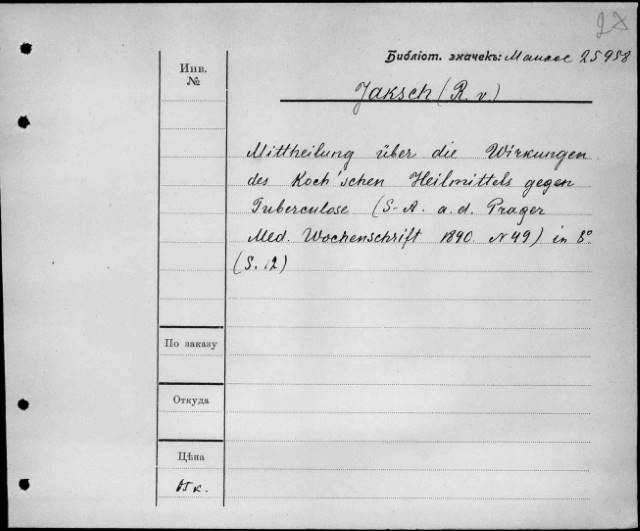 Библіот. значекъ: Малое 25958
Инв.
№
Jaksch (R. v.)
Mittheilung über die Wirkungen
des Koch'schen Heilmittels gegen
Tuberculose (S-A. a.d. Prager
Med. Wochenschrift 1890 N 49) in 8°
(S. 12)
По заказу
Откуда
Цѣна
к.